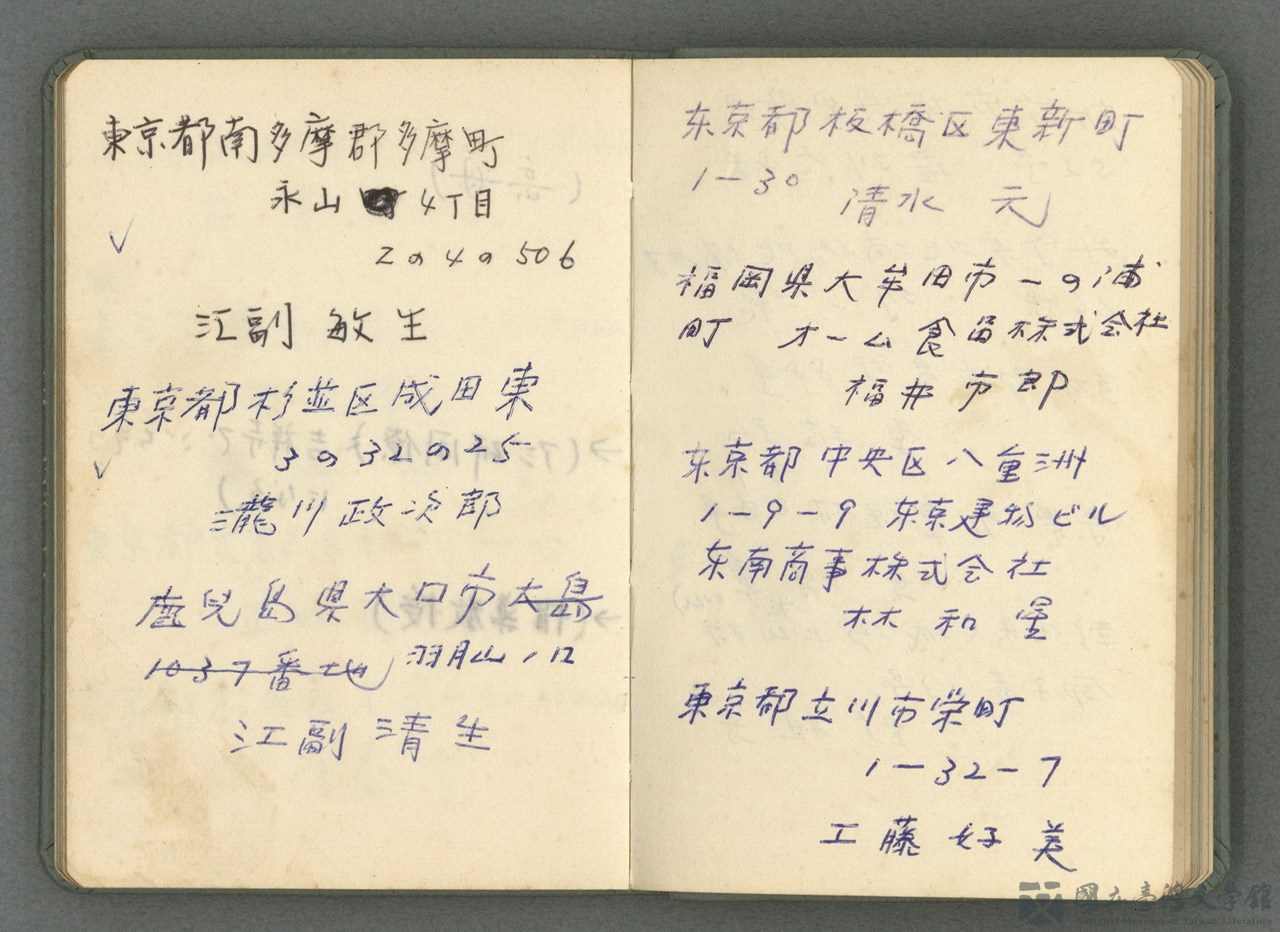 東京都南多摩郡多摩町
永山 4丁目
2の4の506
江副 敏生
東京都杉並区成田東
3の32の25
瀧川政次郎
鹿児島県大口市大島
1037番地 羽月山ノ口
江副 清生
东京都板橋区東新町
1-30
清水 元
福岡県大牟田市一の浦
町 オーム食品株式会社
福井市郎
东京都中央区八重洲
1-9-9 东京建物ビル
东南商事株式会社
林 和星
東京都立川市栄町
1-32-7
工藤 好美
國立臺灣文學館
National Museum of Taiwan Literature